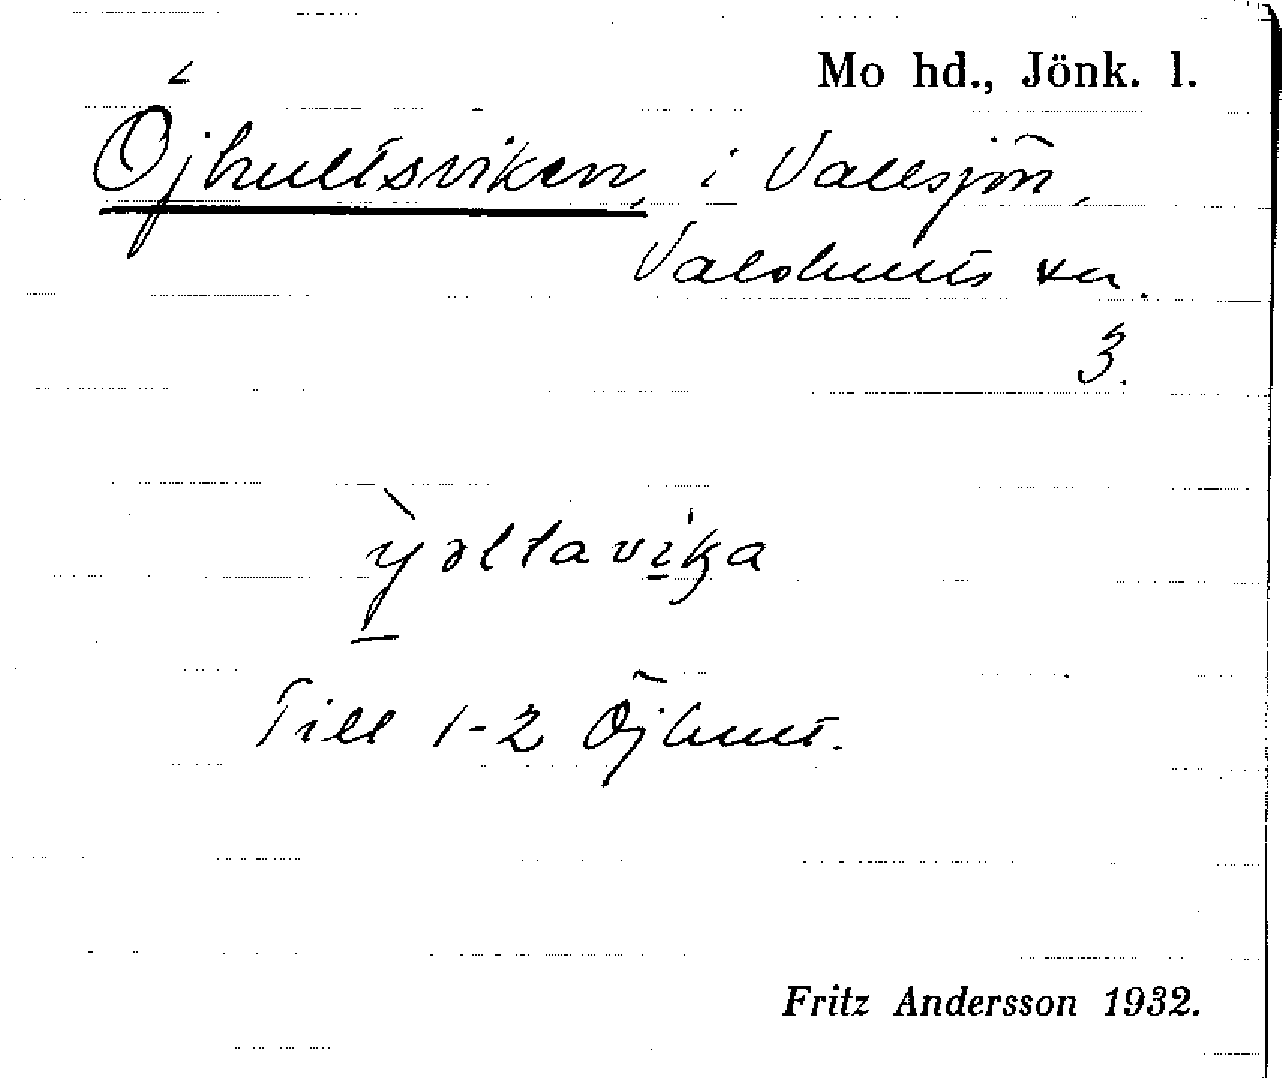 Mo hd., Jönk. l.
Öjhultsviken, i Vallsjön,
Valdshults sn.
3.
ỳəltavika
Till 1-2 Öjhult.
Fritz Andersson 1932.